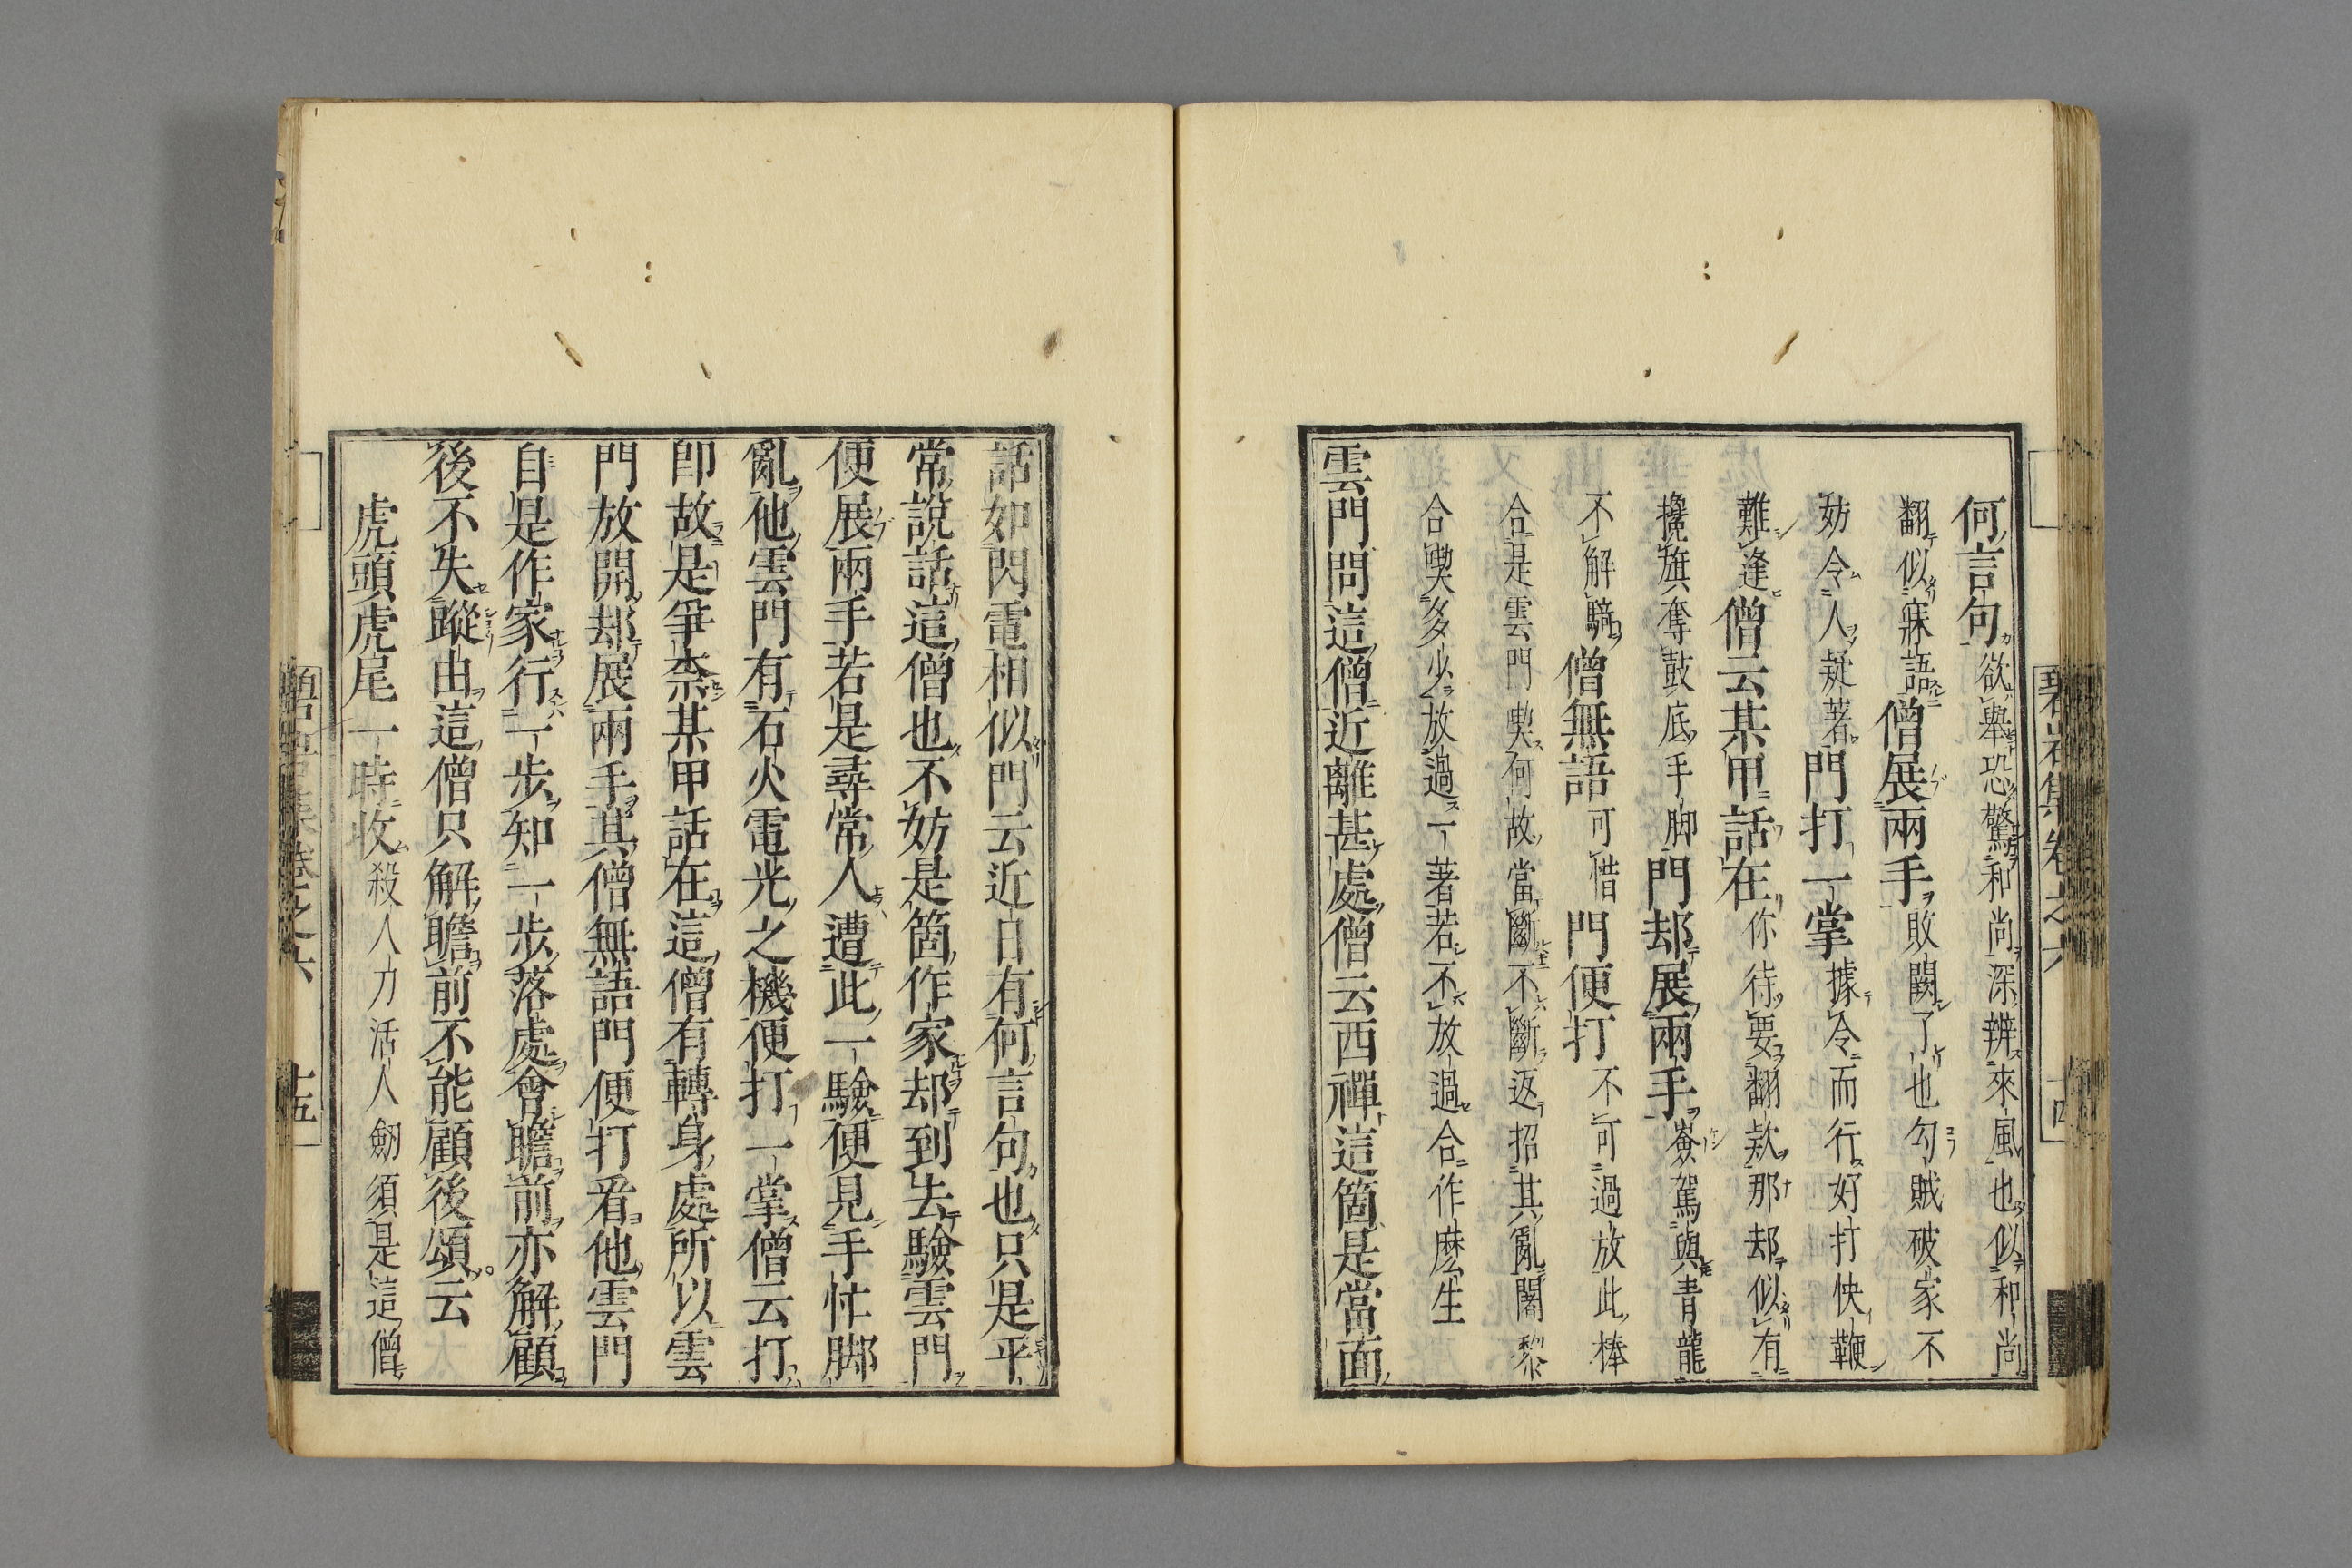 何言句欲舉恐驚和尚深辨來風也似和尚
翻似寐語僧展兩手敗闕了也勾賊破家不
妨令人疑著門打一掌據令而行好打快鞭
難逢僧云某甲話在你待要翻欵那却似有
攙旗奪鼓底手脚門却展兩手嶮駕與青龍
不解騎僧無語可惜門便打不可過放此棒
合是雲門喫何故當斷不斷返招其亂闍黎
合喫多少放過一著若不放過合作麽生
雲門問這僧近離甚處僧云西禪這箇是當面
碧岩集卷之六 十四
話如閃電相似門云近日有何言句也只是平
常說話這僧也不妨是箇作家却到去驗雲門
便展兩手若是尋常人遭此一驗便見手忙脚
亂他雲門有石火電光之機便打一掌僧云打
卽故是爭柰某甲話在這僧有轉身處所以雲
門放開却展兩手其僧無語門便打看他雲門
自是作家行一步知一步落處會瞻前亦解顧
後不失蹤由這僧只解瞻前不能顧後頌云
虎頭虎尾一時收殺人刀活人劒須是這僧
集卷之六 十五